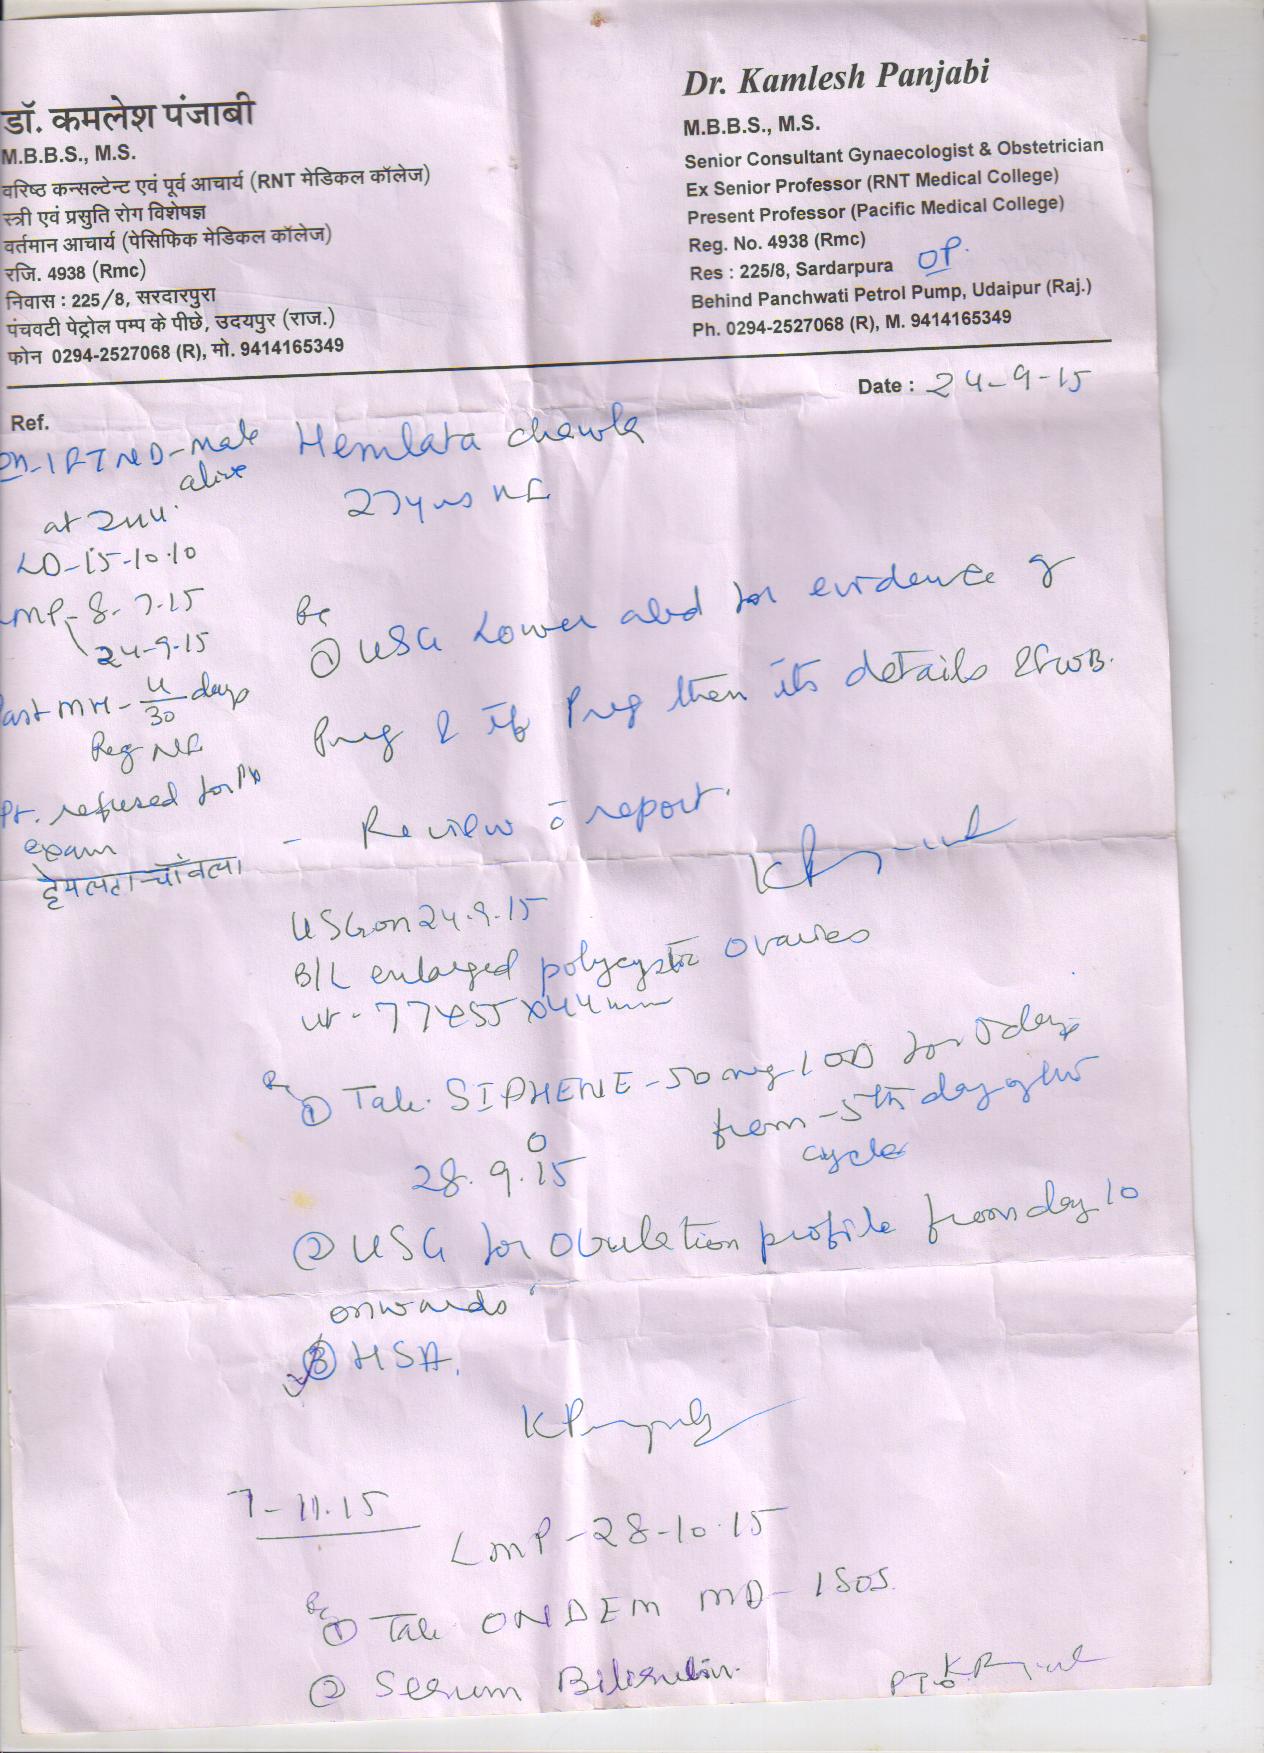 डॉ. कमलेश पंजाबी
M.B.B.S., M.S.
वरिष्ठ कन्सल्टेन्ट एवं पूर्व आचार्य (RNT मेडिकल कॉलेज)
स्त्री एवं प्रसुति रोग विशेषज्ञ
वर्तमान आचार्य (पेसिफिक मेडिकल कॉलेज)
रजि. 4938 (Rmc)
निवास : 225/8, सरदारपुरा
पंचवटी पेट्रोल पम्प के पीछे, उदयपुर (राज.)
फोन 0294-2527068 (R), मो. 9414165349
Dr. Kamlesh Panjabi
M.B.B.S., M.S.
Senior Consultant Gynaecologist & Obstetrician
Ex Senior Professor (RNT Medical College)
Present Professor (Pacific Medical College)
Reg. No. 4938 (Rmc)
Res : 225/8, Sardarpura
OP.
Behind Panchwati Petrol Pump, Udaipur (Raj.)
Ph. 0294-2527068 (R), M. 9414165349
Date : 24-9-15
Ref.
1 FTND - male
alive
LD-15-10-10
LMP- 8-7-15
24-9-15
Past MH - 4/30 days
Reg
Pt. refused for
exam
हेमलता चाँवला
Hemlata chawla
27 yrs
① USG Lower abd for evidence of
Preg & if Preg then its details & FWB.
- Review c̄ report.
USG on 24.9.15
B/L enlarged polycystic ovaries
ut - 77x55x44mm
Rx
① Tab. SIPHENE - 50 mg 1 OD for 5 days
from - 5th day of
cycle
28.9.15
② USG for Ovulation profile from day 10
onwards
③ HSA.
7-11-15
LMP - 28-10-15
Rx
① Tab ONDEM MD - 1 SOS.
② Serum Bilirubin.
PTO